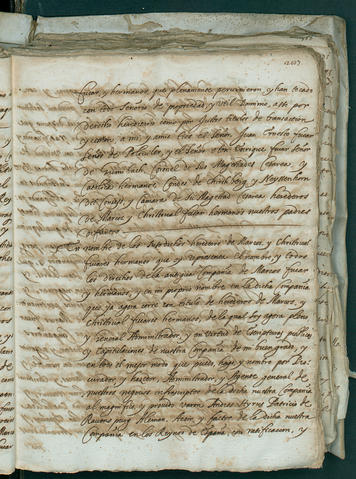 1203
fucar, y hermanos que plenamente pervinieron, y han tocado
con todo Señorio de propiedad, y util Dominio, assi por
derecho heredetario como por justos titulos de transaction
y cession, a mi, y a mi tio el Señor Juan Ernesto fucar
Señor de y el Señor otto Enrique fucar Señor
de Grinenbach, Coronel de sus Magestades Cesarea, y
Catolica hermanos Condes de Kirchberg, y Weyssenhorn
del Consejo, y Camara de su Magestad Cesarea herederos
de Marcos, y Christoval fucar hermanos nuestros padres
difuntos
En nombre de los susodichos herederos de Marcos, y Christoval
fucares hermanos que yo represento en nombre, y todos
los derechos de la antigua Compañia de Marcos fucar
y hermanos, y en mi proprio nombre en la dicha compañia
que ya agora corre con titulo de herederos de Marcos, y
Christoval fucares hermanos, de la qual soy agora pleno
y general Administrador, y en virtud de Scripturas publicas
y Capitulaciones de nuestra Compañia de mi buen grado, y
en todo el mejor modo que puedo, hago, y nombro por Pro
curador, y hactor, Administrador, y Agente general de
nuestros negocios de la dicha nuestra Compañia
al magnifico, y provido varon Andres Hyrus Patricio de
Ravenspurg Aleman, Ator, y factor de la dicha nuestra
Compañia en los Reynos de España, con ratificacion, y